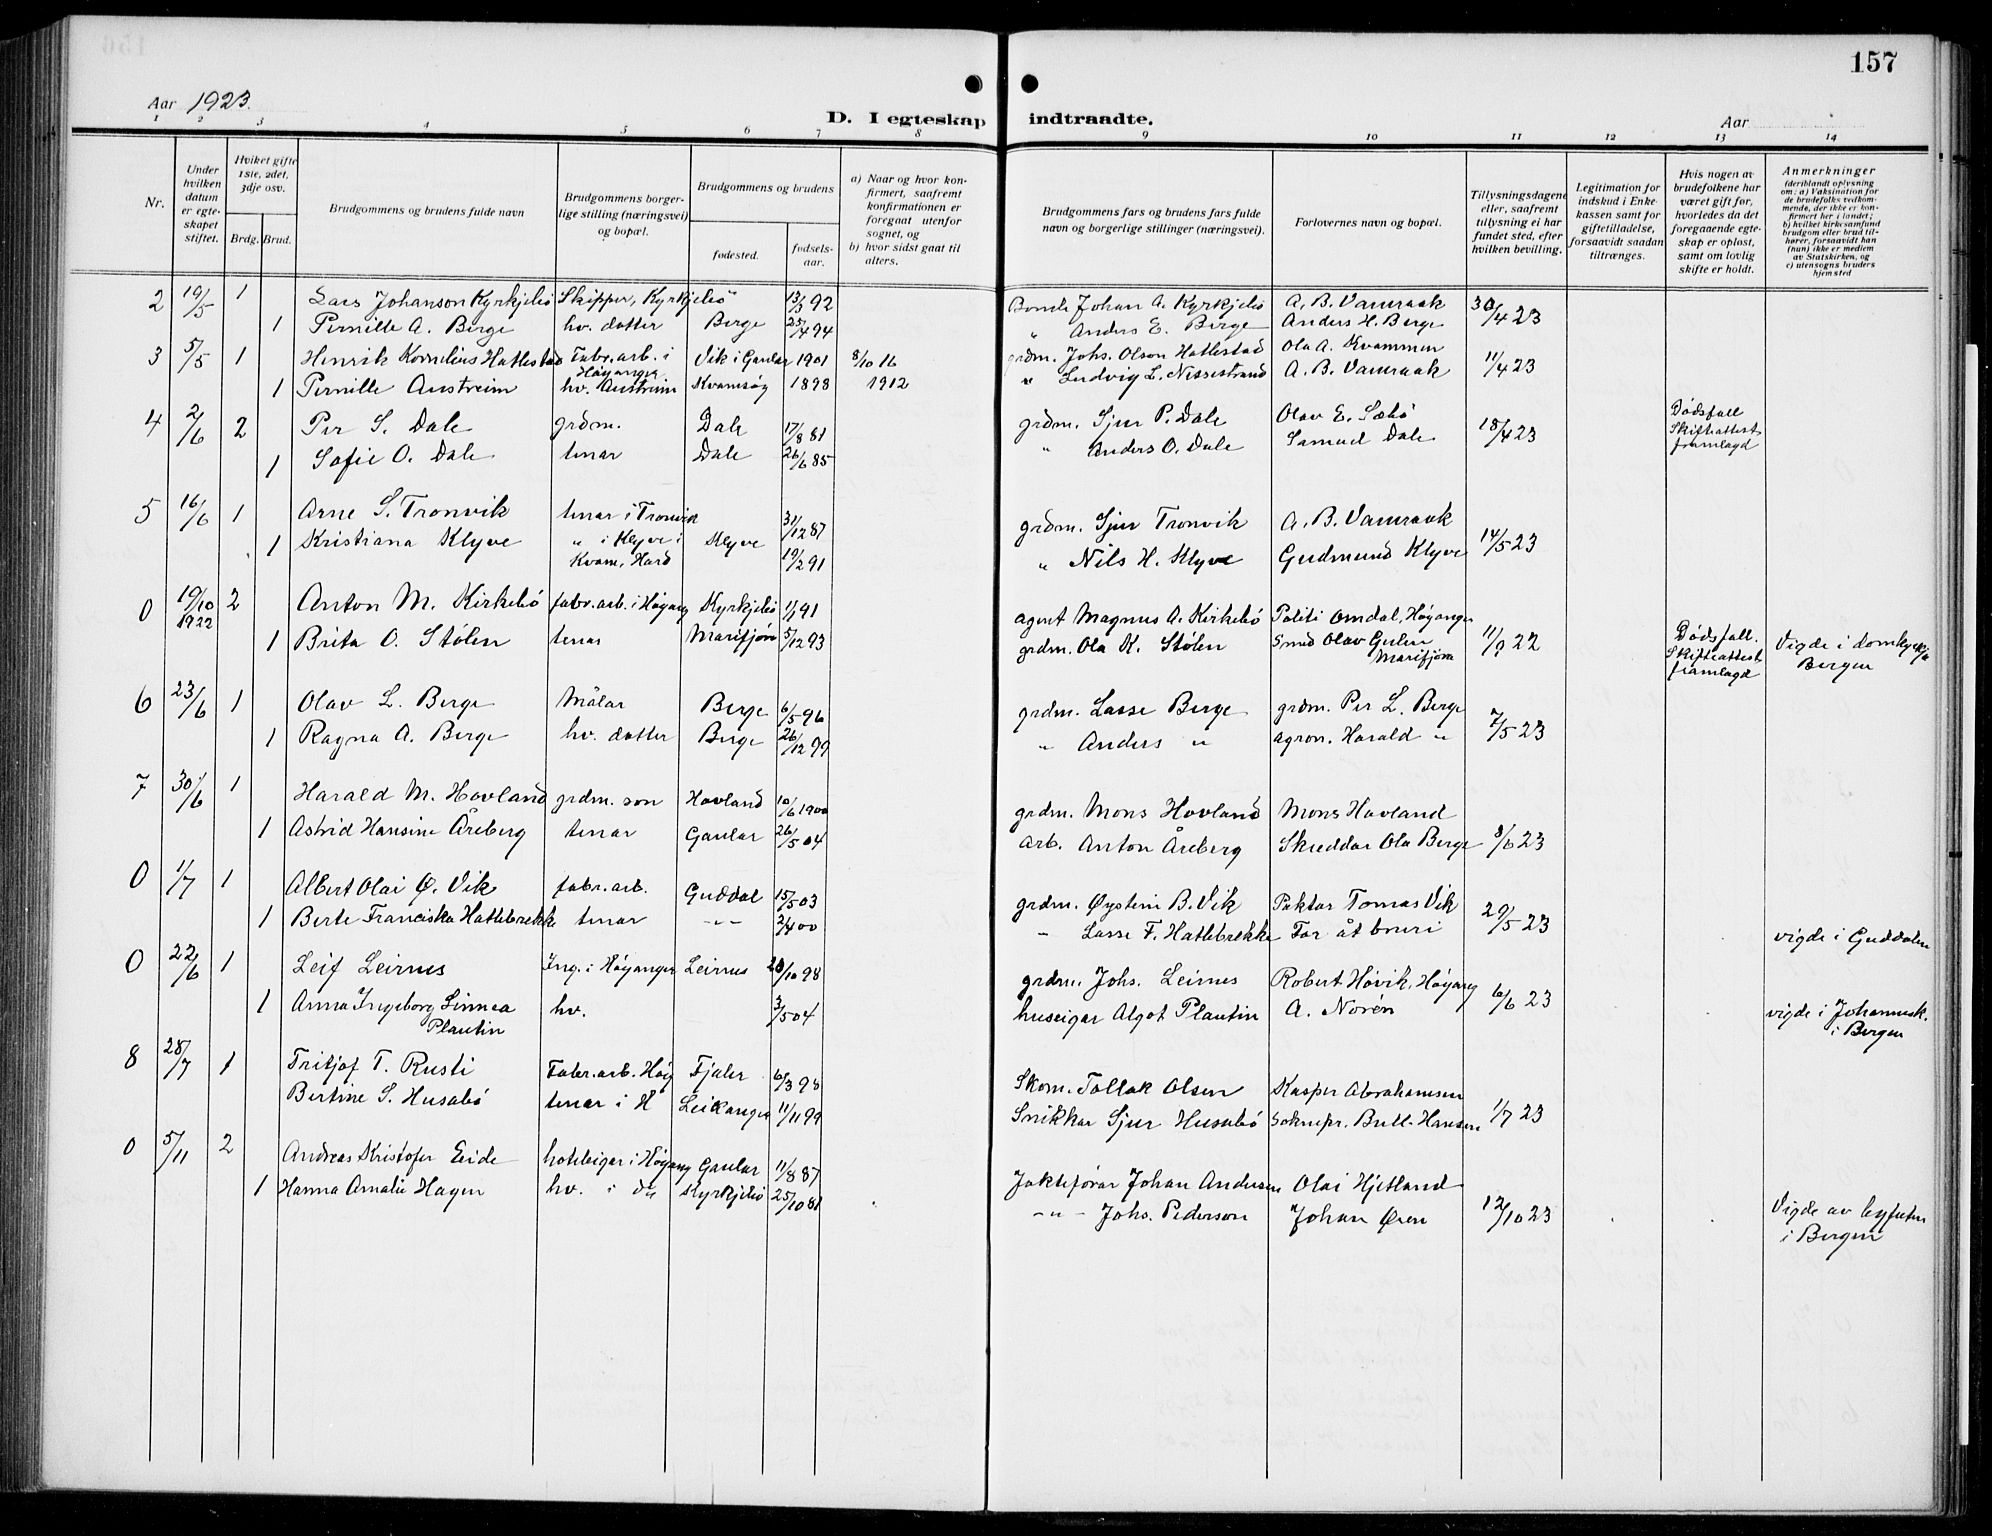 157
Aar 1923.
D. I egteskap indtraadte.
Aar
1 2 3 4 5 6 7 8 9 10 11 12 13 14
Nr.
Under hvilken datum er egteskapet stiftet.
Hviket gifte 1ste, 2det, 3dje osv.
Brdg. Brud.
Brudgommens og brudens fulde navn
Brudgommens borgerlige stilling (næringsvei) og bopæl.
Brudgommens og brudens
fødested.
fødselsaar.
a) Naar og hvor konfirmert, saafremt konfirmationen er foregaat utenfor sognet, og
b) hvor sidst gaat til alters.
Brudgommens fars og brudens fars fulde navn og borgerlige stillinger (næringsvei).
Forlovernes navn og bopæl.
Tillysningsdagene eller, saafremt tillysning ei har fundet sted, efter hvilken bevilling.
Legitimation for indskud i Enkekassen samt for giftetilladelse, forsaavidt saadan tiltrænges.
Hvis nogen av brudefolkene har været gift før, hvorledes da det foregaaende egteskap er opløst, samt om lovlig skifte er holdt.
Anmerkninger
(deriblandt oplysning om: a) Vaksination for de brudefolks vedkommende, der ikke er konfirmert her i landet; b) hvilket kirkesamfund brudgom eller brud tilhører, forsaavidt han (hun) ikke er medlem av Statskirken, og c) utensogns bruders hjemsted
2 19/5 1 Lars Johanson Kyrkjebø Skipper, Kyrkjebø 13/3 92 Bonde Johan A. Kyrkjebø A. B. Vamraak 30/4 23
1 Pernille A. Berge hv. dotter Berge 25/4 94 " Anders E. Berge Anders H. Berge
3 5/5 1 Henrik Kornelius Hatlestad Fabr.arb. i Høyanger Vik i Gaular 1901 8/10 16 grdm. Johs. Olson Hatlestad Ola A. Kvammen 11/4 23
1 Pernille Austreim hv. Austreim Kvamsøy 1898 1912 " Ludvig L. Nessestrand A. B. Vamraak
4 2/6 2 Per S. Dale grdm. Dale 17/8 81 grdm. Sjur P. Dale Olav E. Sæbø 18/4 23 Dødsfall Skifteattest framlagd
1 Sofie O. Dale tenar Dale 26/6 85 " Anders O. Dale Samuel Dale
5 16/6 1 Arne S. Tronvik tenar i Tronvik 31/12 87 grdm. Sjur Tronvik A. B. Vamraak 14/5 23
1 Kristiana Klyve " i Klyve i Kvam, Hard Klyve 19/2 91 " Nils H. Klyve Gudmund Klyve
0 19/10 1922 2 Anton M. Kirkebø fabr.arb. i Høyang Kyrkjebø 1/1 91 agent Magnus A. Kirkebø Politi Omdal, Høyanger 11/9 22 Dødsfall. Skifteattest framlagd Vigde i domkyrkja Bergen
1 Brita O. Stølen tenar Marifjøra 5/12 93 grdm. Ola K. Stølen Smed Olav Gulen Marifjøra
6 23/6 1 Olav L. Berge Målar Berge 6/5 96 grdm. Lasse Berge grdm. Per L. Berge 7/5 23
1 Ragna A. Berge hv. dotter Berge 26/12 99 " Anders " agron. Harald "
7 30/6 1 Harald M. Hovland grdm. son Hovland 10/6 1900 grdm. Mons Hovland Mons Hovland 8/6 23
1 Astrid Hansine Åreberg tenar Gaular 26/5 04 arb. Anton Åreberg Skreddar Ola Berge
0 1/7 1 Albert Olai Ø. Vik fabr.arb. Guddal 15/5 03 grdm. Øystein B. Vik Paktar Tomas Vik 29/5 23
1 Berte Franciska Hatlebrekke tenar -"- 2/4 00 " Lasse F. Hatlebrekke Far åt bruri vigde i Guddalen
0 22/6 1 Leif Leirnes Ing. i Høyanger Leirnes 20/10 98 grdm. Johs. Leirnes Robert Høvik, Høyang 6/6 23
1 Anna Ingeborg Linnea Plautin hv. 3/5 04 huseigar Algot Plautin A. Norén vigde i Johannesk. i Bergen
8 28/7 1 Fritjof T. Rusti Fabr.arb. Høy Fjaler 6/3 98 Skom. Tollak Olsen Kasper Abrahamsen 1/7 23
Bertine S. Husabø tenar i H Leikanger 11/11 99 Snikkar Sjur Husabø Soknepr. Bull-Hansen
0 5/11 2 Andreas Kristofer Eide hoteleigar i Høyang Gaular 11/8 87 Jaktefører Johan Andersen Olai Hjetland 12/10 23
1 Hanna Amalie Hagen hv. i do Kyrkjebø 25/10 81 -"- Johs. Pederson Johan Øren Vigde av byfuten i Bergen